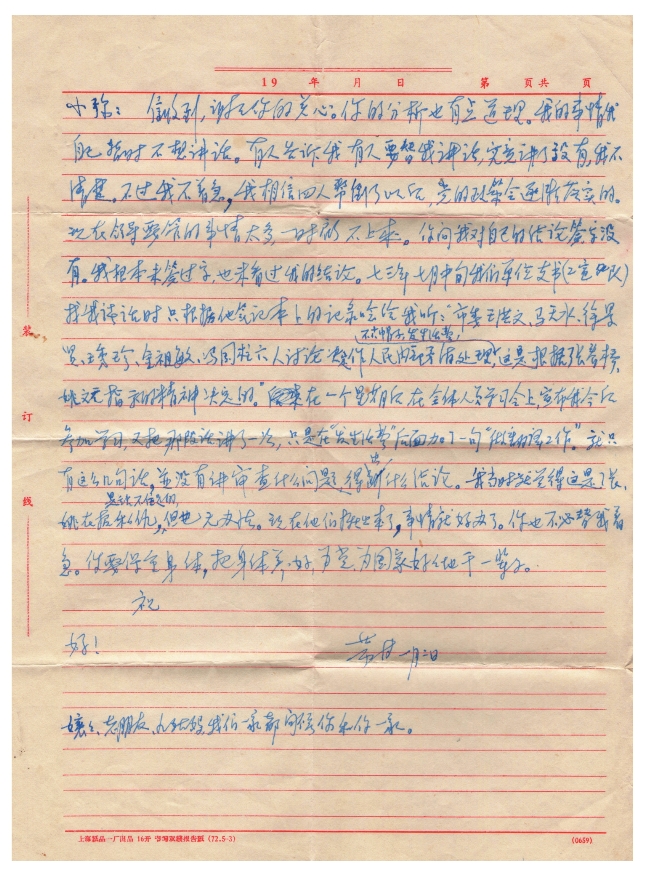 19 年 月 日 第 页共 页
小 : 信收到,谢谢你的关心。你的分析也有点道理。我的事情我
自己暂时不想讲话。有人告诉我有人要替我讲话,究竟讲了没有,我不
清楚。不过我不着急,我相信四人帮倒了以后,党的政策会逐渐落实的。
现在领导要管的事情太多,一时 不上来。你问我对自己的结论签字没
有。我根本未签过字,也未看过我的结论。七三年七月中旬我们单位支书(工宣队)
找我谈话时只根据他笔记本上的记录念给我听:“市委王洪文、马天水、徐景
不戴帽子,发生活费,
贤、王秀珍、金祖敏、冯国柱六人讨论 作人民内部矛盾处理,这是根据张春桥、
姚文元指示的精神决定的。” 在一个星期后在全体人员学习会上,宣布我今后
参加学习,又把那段话讲了一次,只是在“发生活费”后面加了一句“做翻译工作”。就只
有这么几句话,并没有讲审查什么问题得出什么结论。我当时就觉得这是张、
是 的,
姚在报私仇,但也无办法。现在他们揪出来了,事情就好办了。你也不必替我着
急。你要保重身体,把身体养好,为党、为国家好好地干一辈子。
祝
好!
芾甘 一月二日
嬢嬢、老朋友、 我们一家都问候你和你一家。
装
订
线
上海纸品一厂出品 16开 报告纸 (72.5-3) (0659)